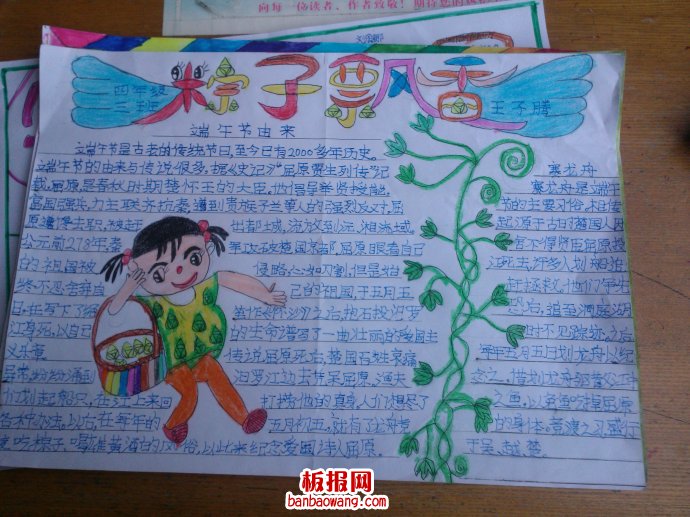 向每一位读者、作者致敬！期待您的
粽子飘香
四年级
二班
王子腾
端午节由来
端午节是古老的传统节日，至今已有2000多年历史。
端午节的由来与传说很多，据《史记》“屈原贾生列传”记
载，屈原，是春秋时期楚怀王的大臣，他倡导举贤授能，
富国强兵，力主联齐抗秦，遭到贵族子兰等人的强烈反对，屈
原遭馋去职，被赶 出都城，流放到沅、湘流域。
公元前278年，秦 军攻破楚国京都，屈原眼看自己
的祖国被 侵略，心如刀割，但是始
终不忍舍弃自 己的祖国，于五月五
日，在写下了 笔作《怀沙》之后，抱石投汨罗
江身死，以自己 的生命谱写了一曲壮丽的爱国主
义乐章。 传说屈原死后，楚国百姓哀痛
异常，纷纷涌到 汨罗江边去凭吊屈原。渔夫
们划起船只，在江上来回 打捞他的真身，人们想尽了
各种办法。以后，在每年的 五月初五，就有了龙舟竞
吃粽子、喝雄黄酒的风俗，以此来纪念爱国诗人屈原。
赛龙舟
赛龙舟是端午
节的主要习俗。相传
起源于古时楚国人因
舍不得贤臣屈原投
江死去，许多人划船追
赶拯救。他们争先
恐后，追至洞庭湖
时不见踪迹。之后
每年五月五日划龙舟以纪
念之。借划龙舟驱散江中
之鱼，以免鱼吃掉屈原
的身体。竞渡之习，盛行
于吴、越、楚。
板报网
banbaowang.com